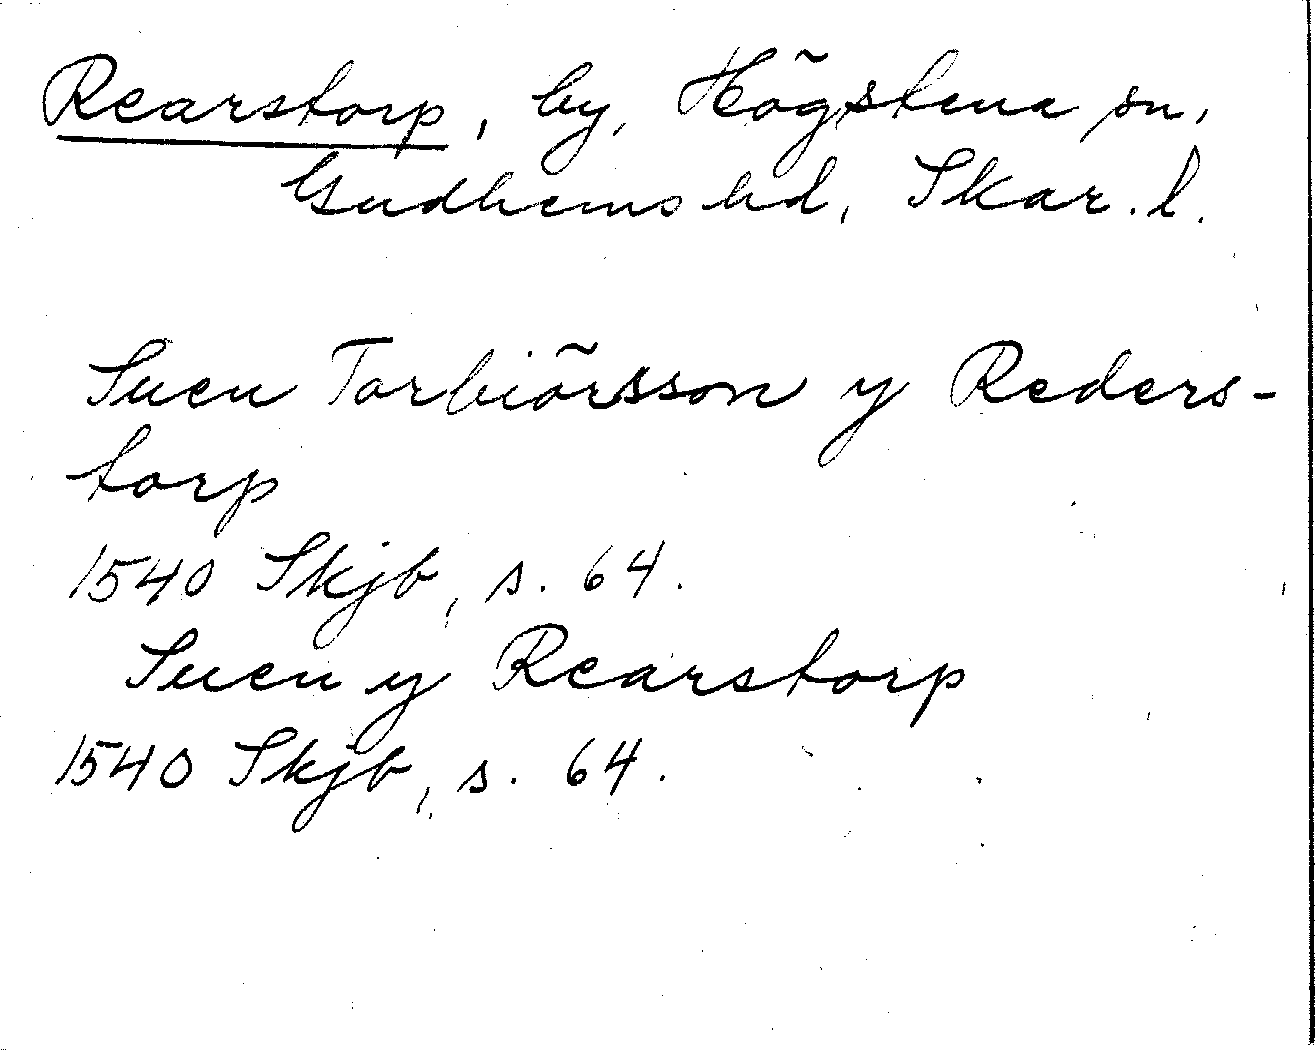 Rearstorp, by, Högstena sn,
Gudhems hd, Skar. l.
Suen Torbiörsson y Reders-
torp
1540 Skjb, s. 64.
Suen y Rearstorp
1540 Skjb, s. 64.